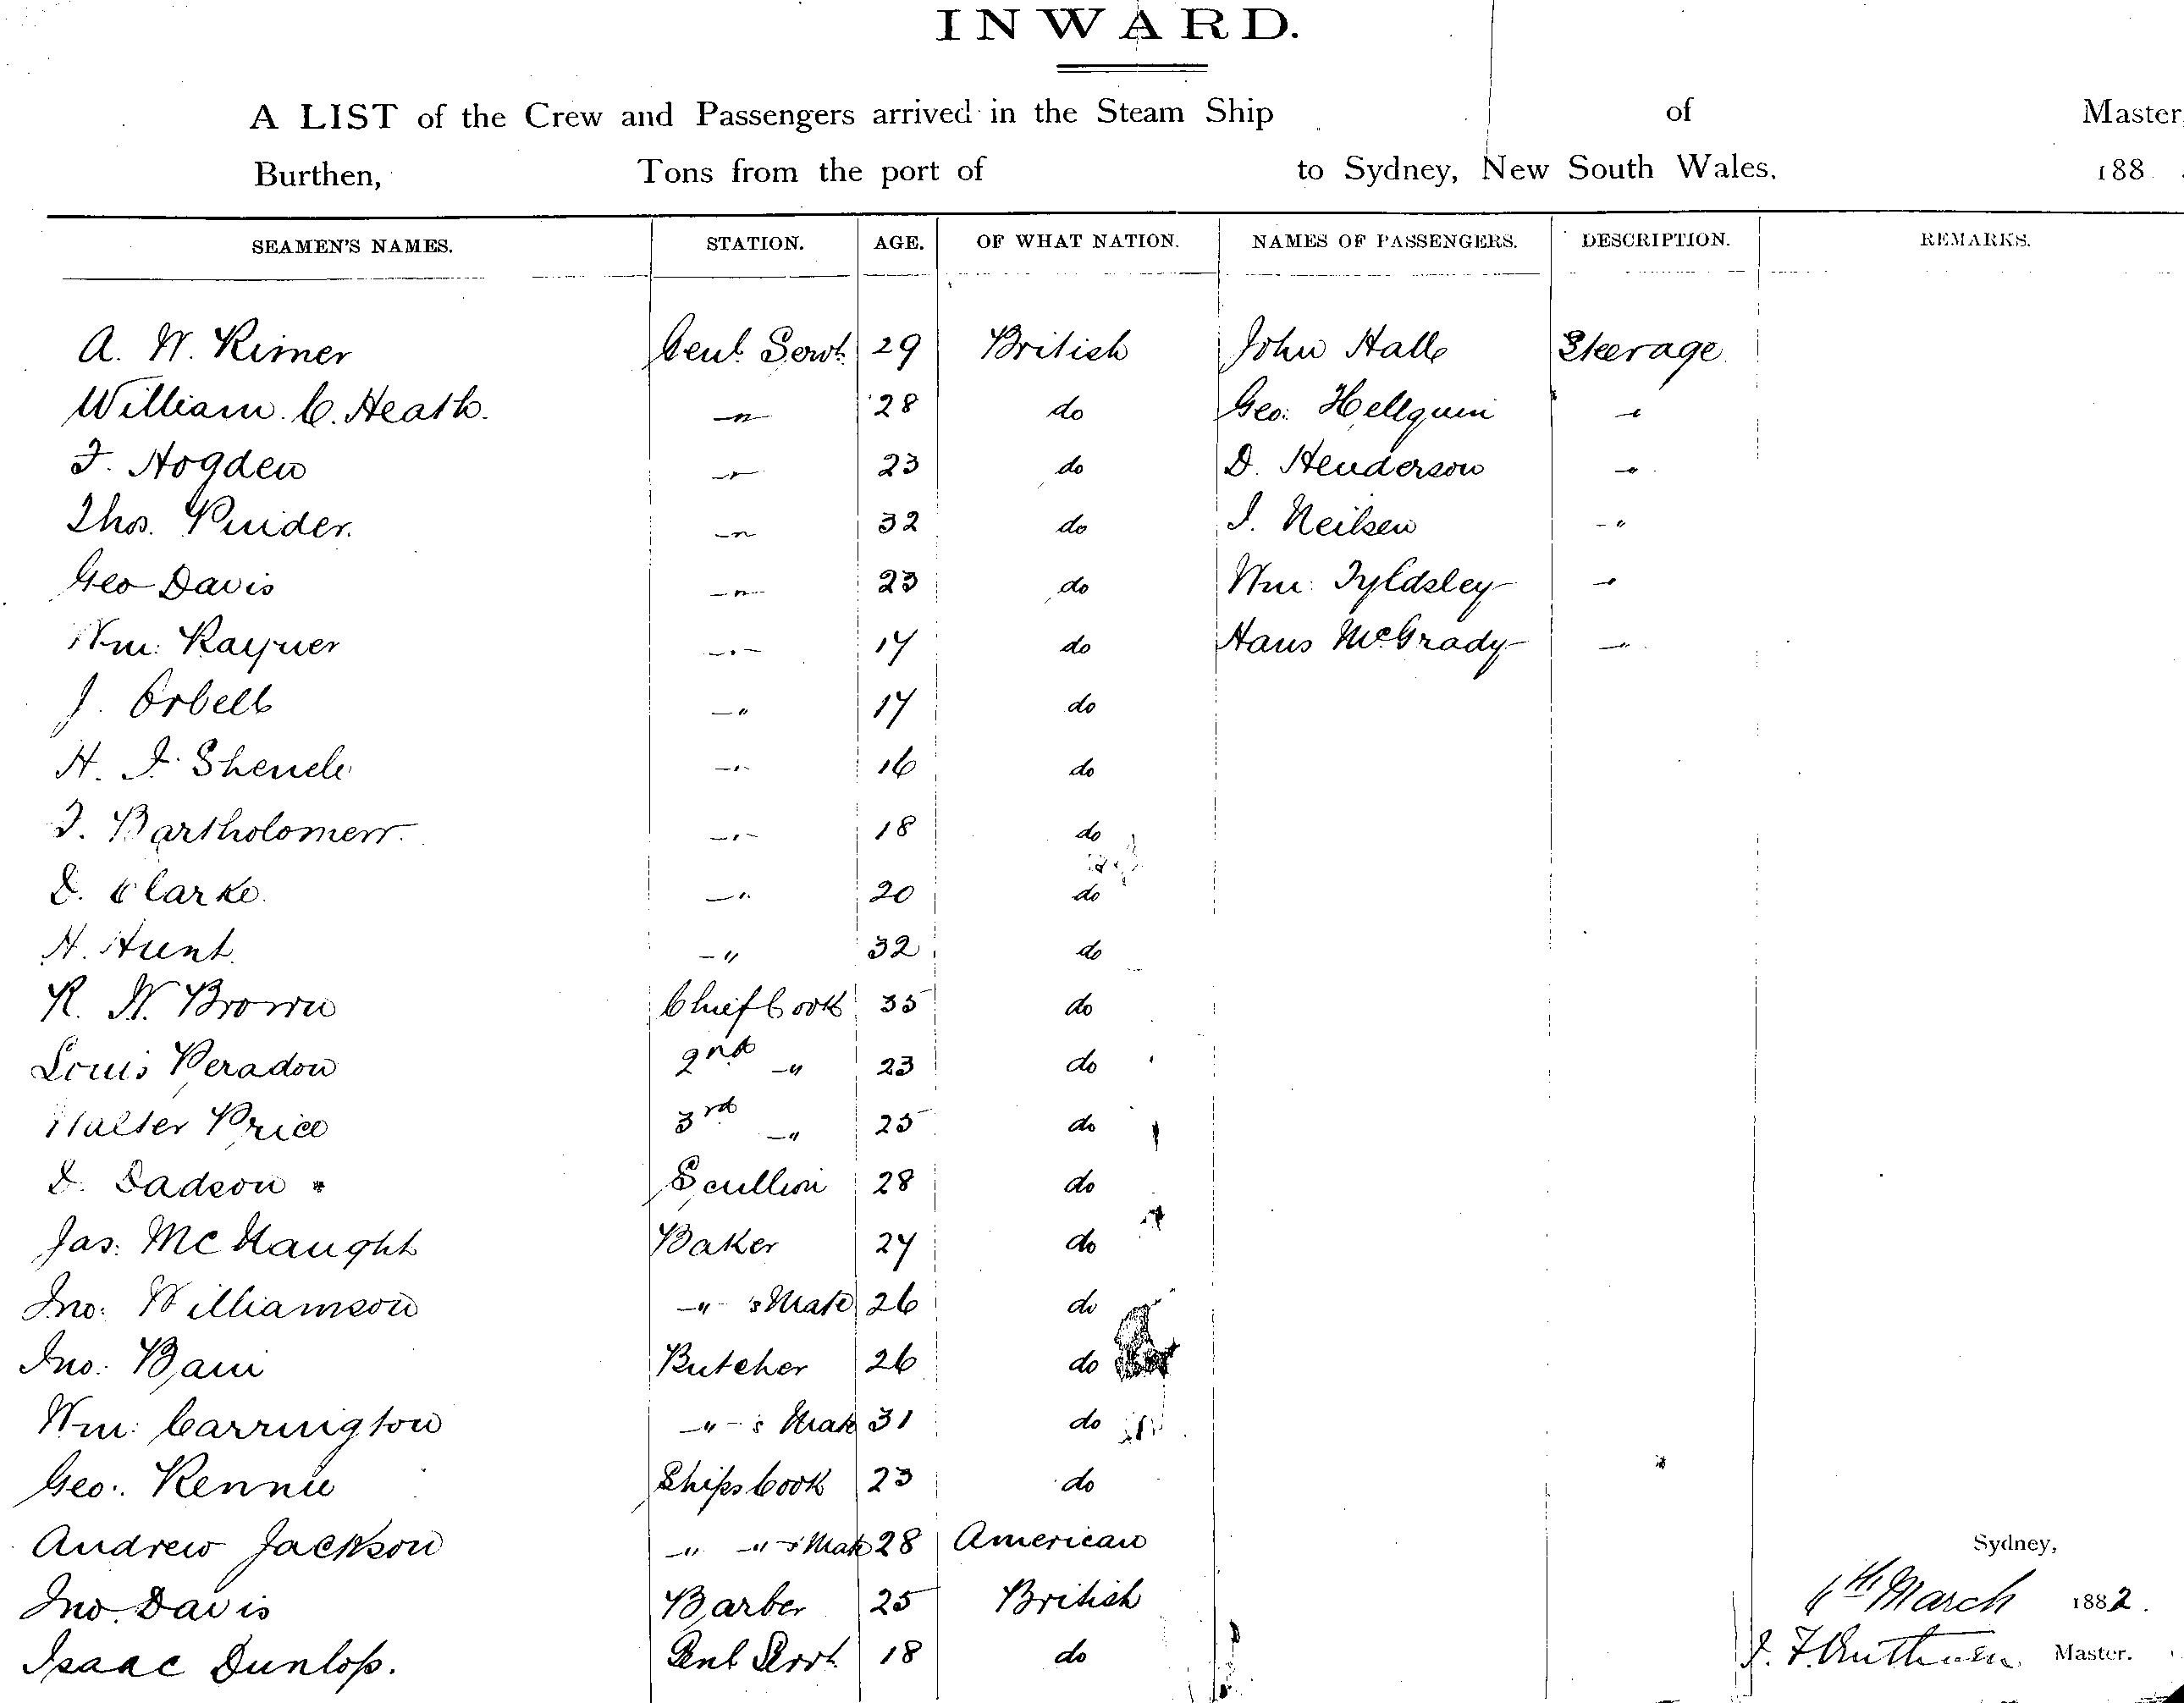 INWARD.
A LIST of the Crew and Passengers arrived in the Steam Ship of Master,
Burthen, Tons from the port of to Sydney, New South Wales, 188
SEAMEN'S NAMES. STATION. AGE. OF WHAT NATION. NAMES OF PASSENGERS. DESCRIPTION. REMARKS.
A. W. Rimer Genl. Servt. 29 British John Hall Steerage
William. C. Heath. —"— 28 do Geo: Hellquin —"
F. Hogden —"— 23 do D. Henderson —"
Thos. Pinder. —"— 32 do I. Neilsen —"
Geo Davis —"— 23 do Wm: Tyldsley —"
Wm: Rayner —"— 17 do Hans McGrady —"
J. Orbell —" 17 do
H. F. —"— 16 do
T. Bartholomew. —"— 18 do
D. Clarke. —" 20 do
H. Hunt. —" 32 do
R. W. Brown Chief Cook 35 do
Louis Peradon 2nd —" 23 do
Walter Price 3rd —" 25 do
D. Dadson Scullion 28 do
Jas: McNaught Baker 27 do
Jno: Williamson —"— 's Mate 26 do
Jno: Bain Butcher 26 do
Wm: Carrington —"— 's Mate 31 do
Geo: Rennie Ships Cook 23 do
Andrew Jackson —" —" 's Mate 28 American
Jno. Davis Barber 25 British
Isaac Dunlop. Genl Servt. 18 do
Sydney,
6th March 1882.
Master.